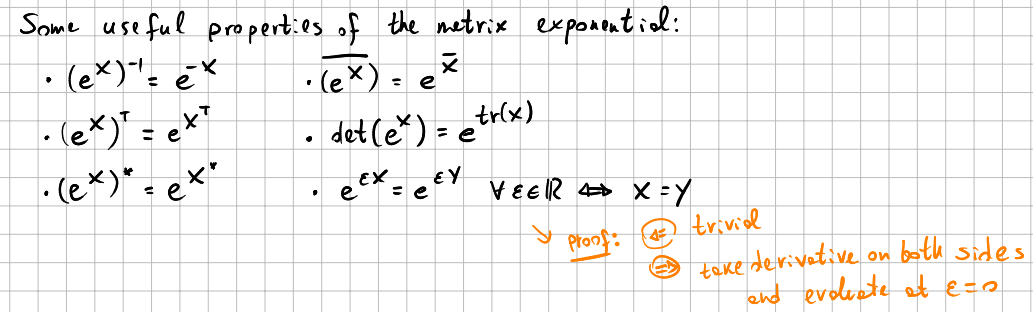 Some useful properties of the metrix exponential:
· (e^X)^-1 = e^-X · \overline{(e^X)} = e^{\overline{X}}
· (e^X)^T = e^{X^T} · det(e^X) = e^{tr(X)}
· (e^X)^* = e^{X^*} · e^{εX} = e^{εY} ∀ε∈ℝ ⇔ X = Y
↘ Proof: ⇐ trivial
⇒ take derivative on both sides
and evaluate at ε=0